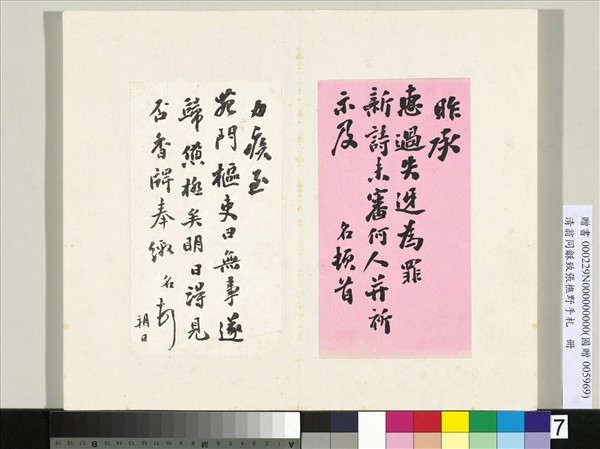 昨承
惠過失迓為罪
新詩未審何人并祈
示及
名頓首
力疾至
苑門樞吏曰無事遂
歸憊極矣明日得見
否香牌奉繳名
朔日
贈書 000229N000000000(國贈 005969)
清翁同龢致張樵野手札 冊
7